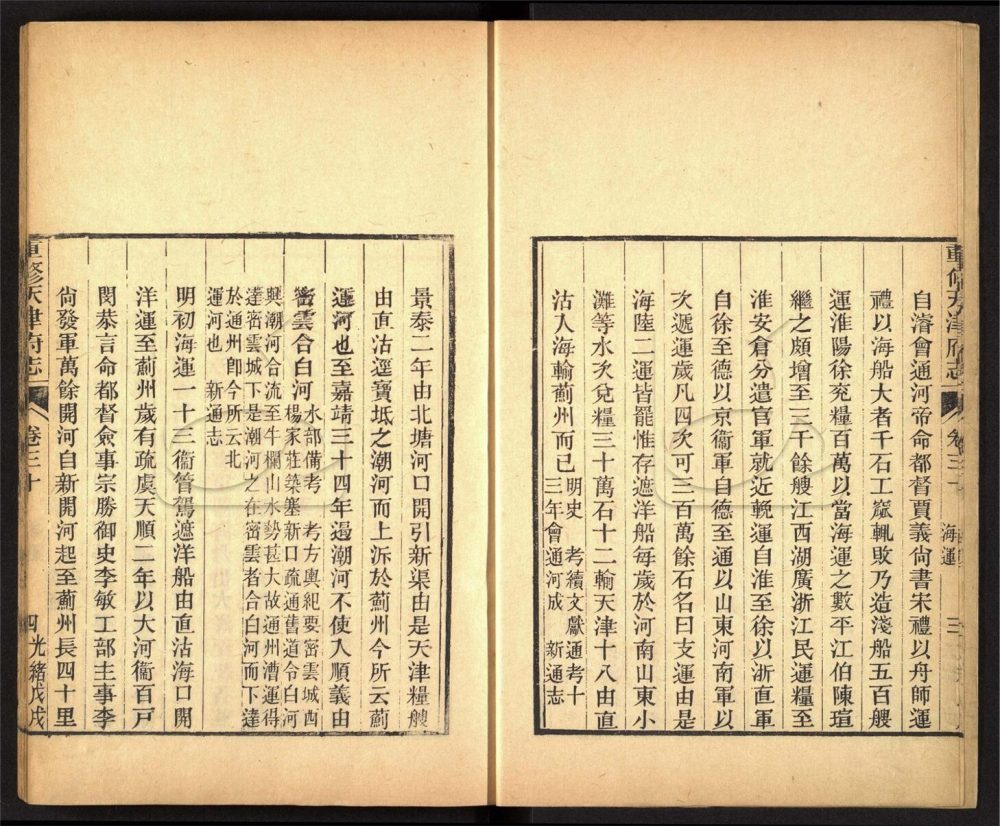 重修天津府志 卷三十 海運 三
自濬會通河帝命都督賈義尚書宋禮以舟師運
禮以海船大者千石工窳輒敗乃造淺船五百艘
運淮陽徐兖糧百萬以當海運之數平江伯陳瑄
繼之頗增至三千餘艘江西湖廣浙江民運糧至
淮安倉分遣官軍就近輓運自淮至徐以浙直軍
自徐至德以京衞軍自德至通以山東河南軍以
次遞運歲凡四次可三百萬餘石名曰支運由是
海陸二運皆罷惟存遮洋船每歲於河南山東小
灘等水次兌糧三十萬石十二輸天津十八由直
沽入海輸薊州而已
明史 考續文獻通考十
三年會通河成 新通志
景泰二年由北塘河口開引新渠由是天津糧艘
由直沽逕寶坻之潮河而上泝於薊州今所云薊
運河也至嘉靖三十四年遏潮河不使人順義由
密雲合白河
水部備考 考方輿紀要密雲城西
楊家莊築塞新口疏通舊道令白河
與潮河合流至牛欄山水勢甚大故通州漕運得
達密雲城下是潮河之在密雲者合白河而下達
於通州卽今所云北
運河也 新通志
明初海運一十三衞管駕遮洋船由直沽海口開
洋運至薊州歲有疏虞天順二年以大河衞百戸
閔恭言命都督僉事宗勝御史李敏工部主事李
尙發軍萬餘開河自新開河起至薊州長四十里
重修天津府志 卷三十 四 光緒戊戌